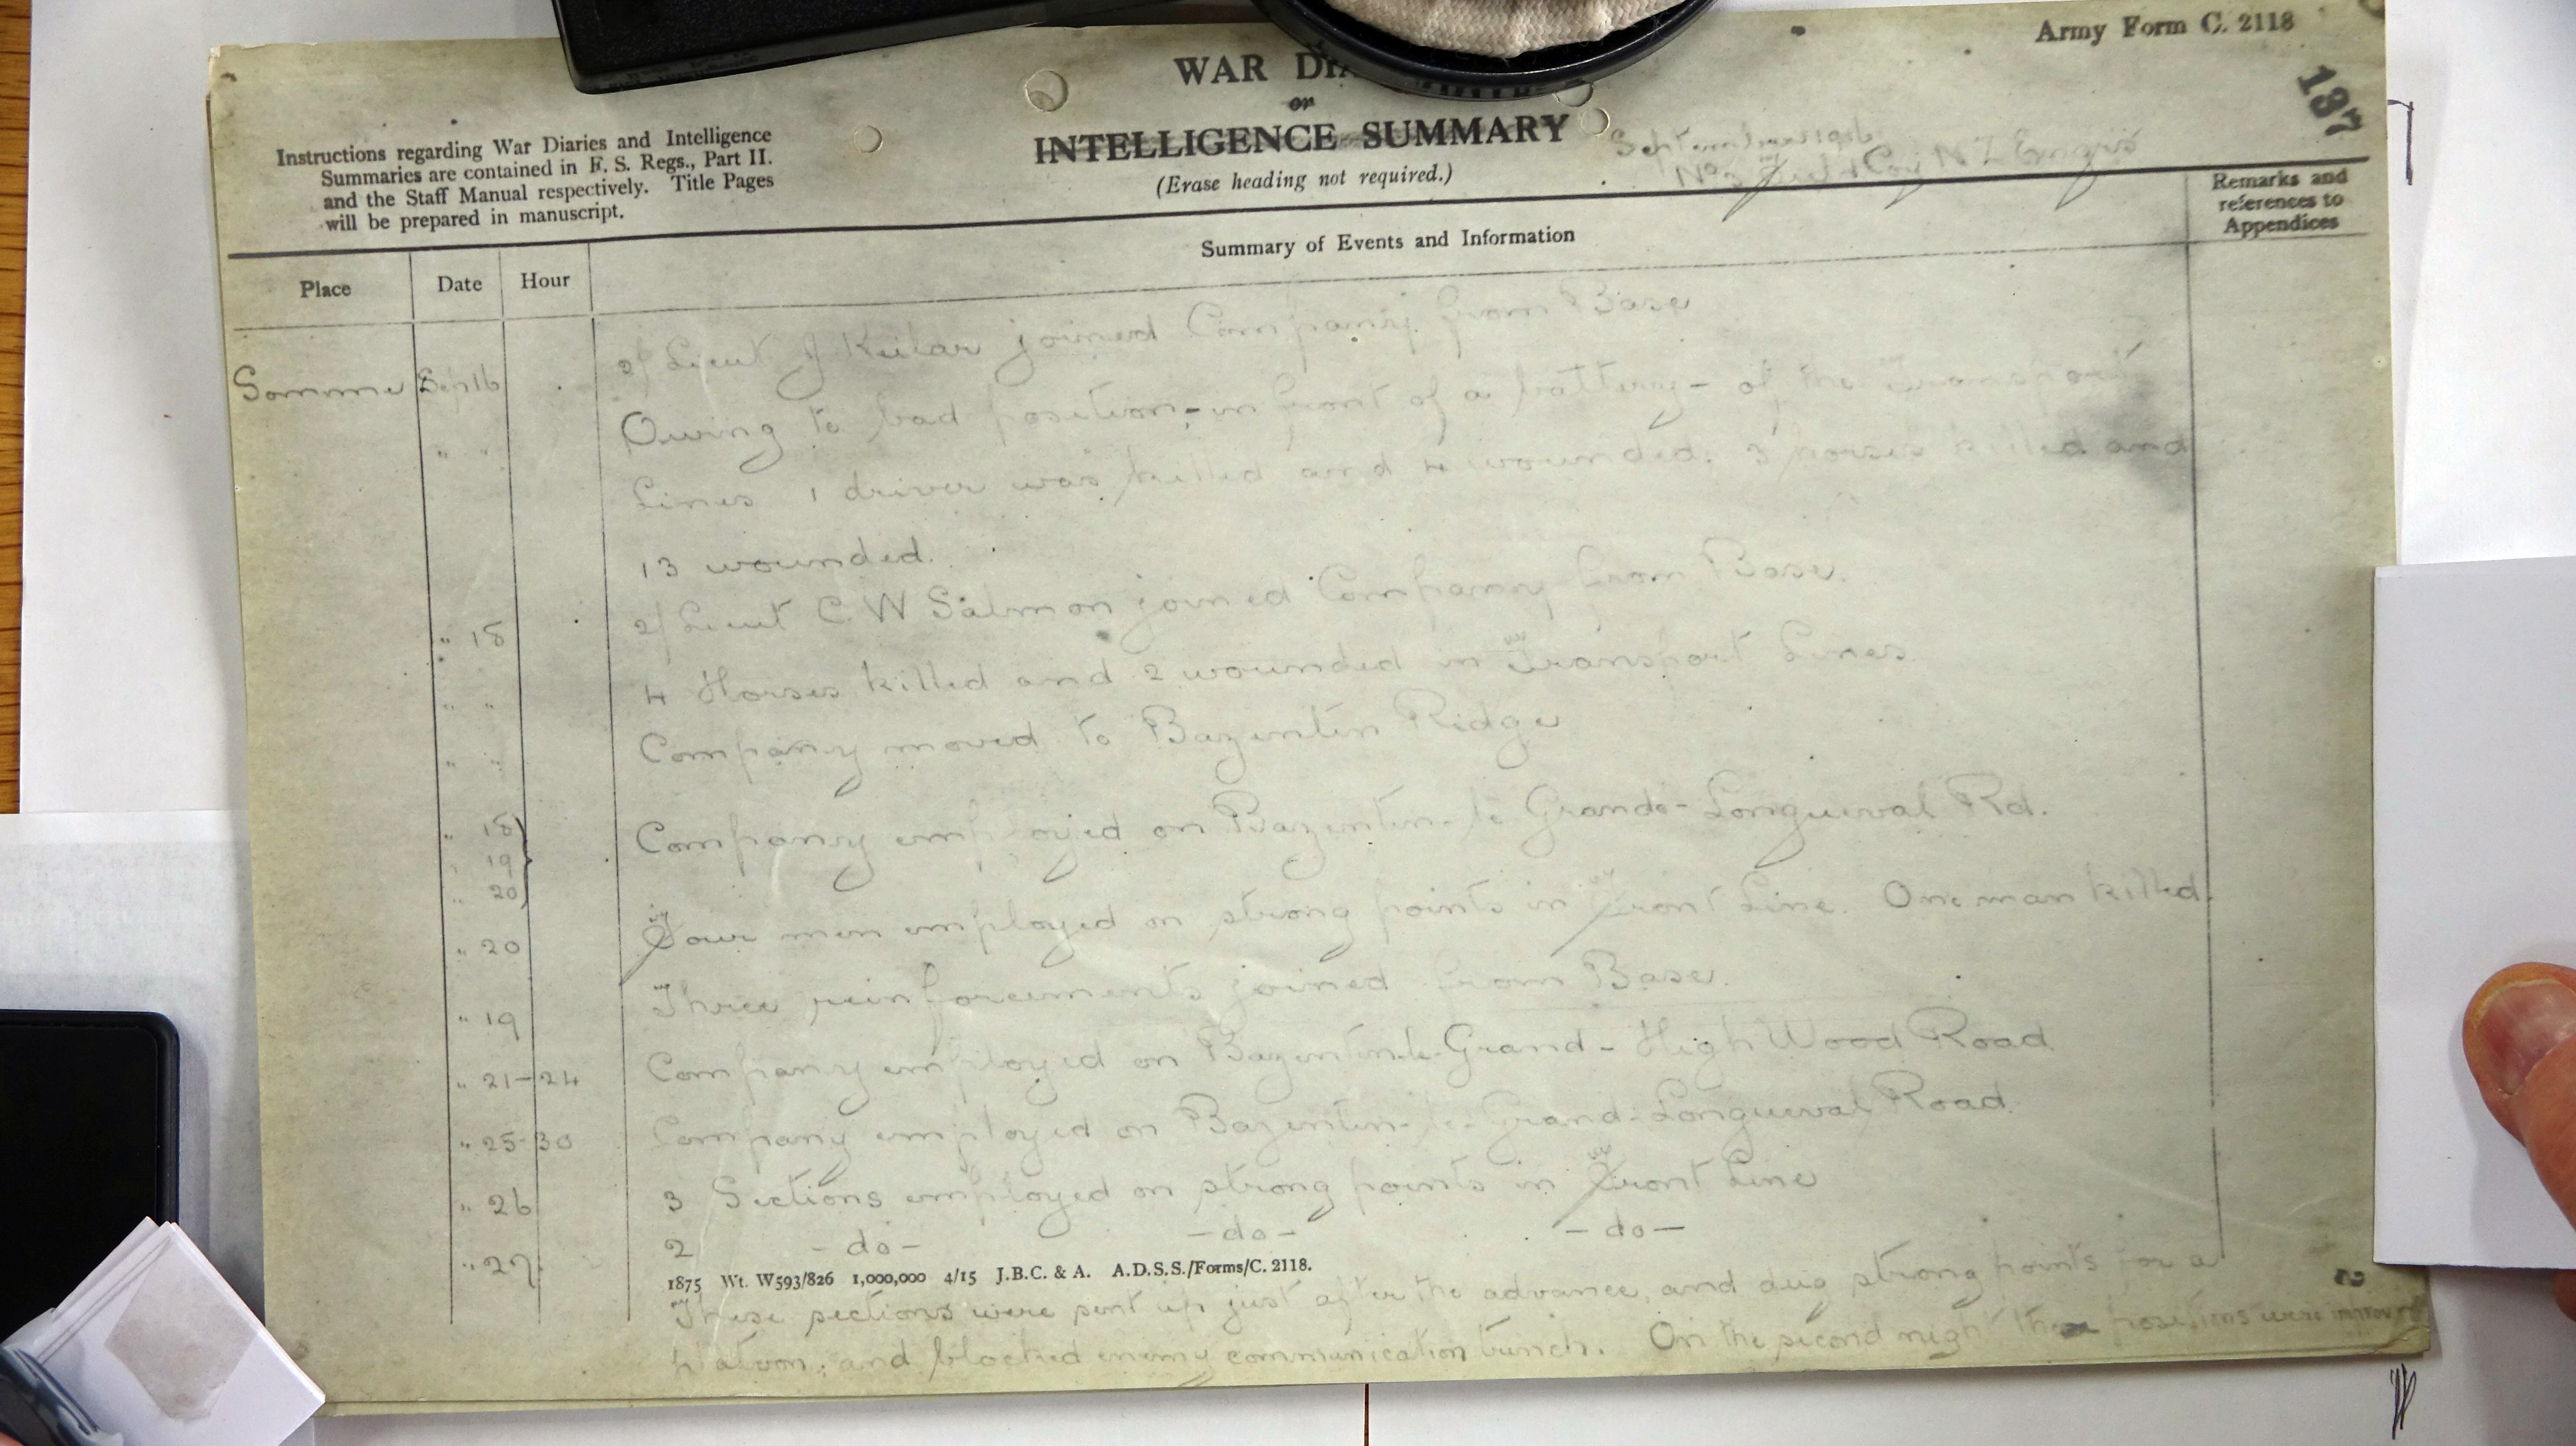 Army Form C. 2118
137
WAR DIA
or
INTELLIGENCE SUMMARY
(Erase heading not required.)
Instructions regarding War Diaries and Intelligence
Summaries are contained in F. S. Regs., Part II.
and the Staff Manual respectively. Title Pages
will be prepared in manuscript.
Place Date Hour Summary of Events and Information Remarks and
references to
Appendices
Somme Sep 16 2/Lieut J Keilar joined Company from Base
" " Owing to bad position - in front of a battery - of the Transport
Lines 1 driver was killed and 4 wounded. 3 horses killed and
13 wounded.
" 18 2/Lieut C W Salmon joined Company from Base.
" " 4 Horses killed and 2 wounded in Transport Lines
" " Company moved to Bazentin Ridge
" 18 Company employed on Bazentin-le Grand-Longueval Rd.
" 19
" 20
" 20 Four men employed on strong points in Front Line. One man killed.
" 19 Three reinforcements joined from Base.
" 21-24 Company employed on Bazentin-le-Grand-High Wood Road.
" 25-30 Company employed on Bazentin-le-Grand-Longueval Road.
" 26 3 Sections employed on strong points in Front Line
" 27. 2 -do- -do- -do-
1875 Wt. W593/826 1,000,000 4/15 J.B.C. & A. A.D.S.S./Forms/C. 2118.
These sections were sent up just after the advance, and dug strong points for a
platoon, and blocked enemy communication trench. On the second night these positions were improved